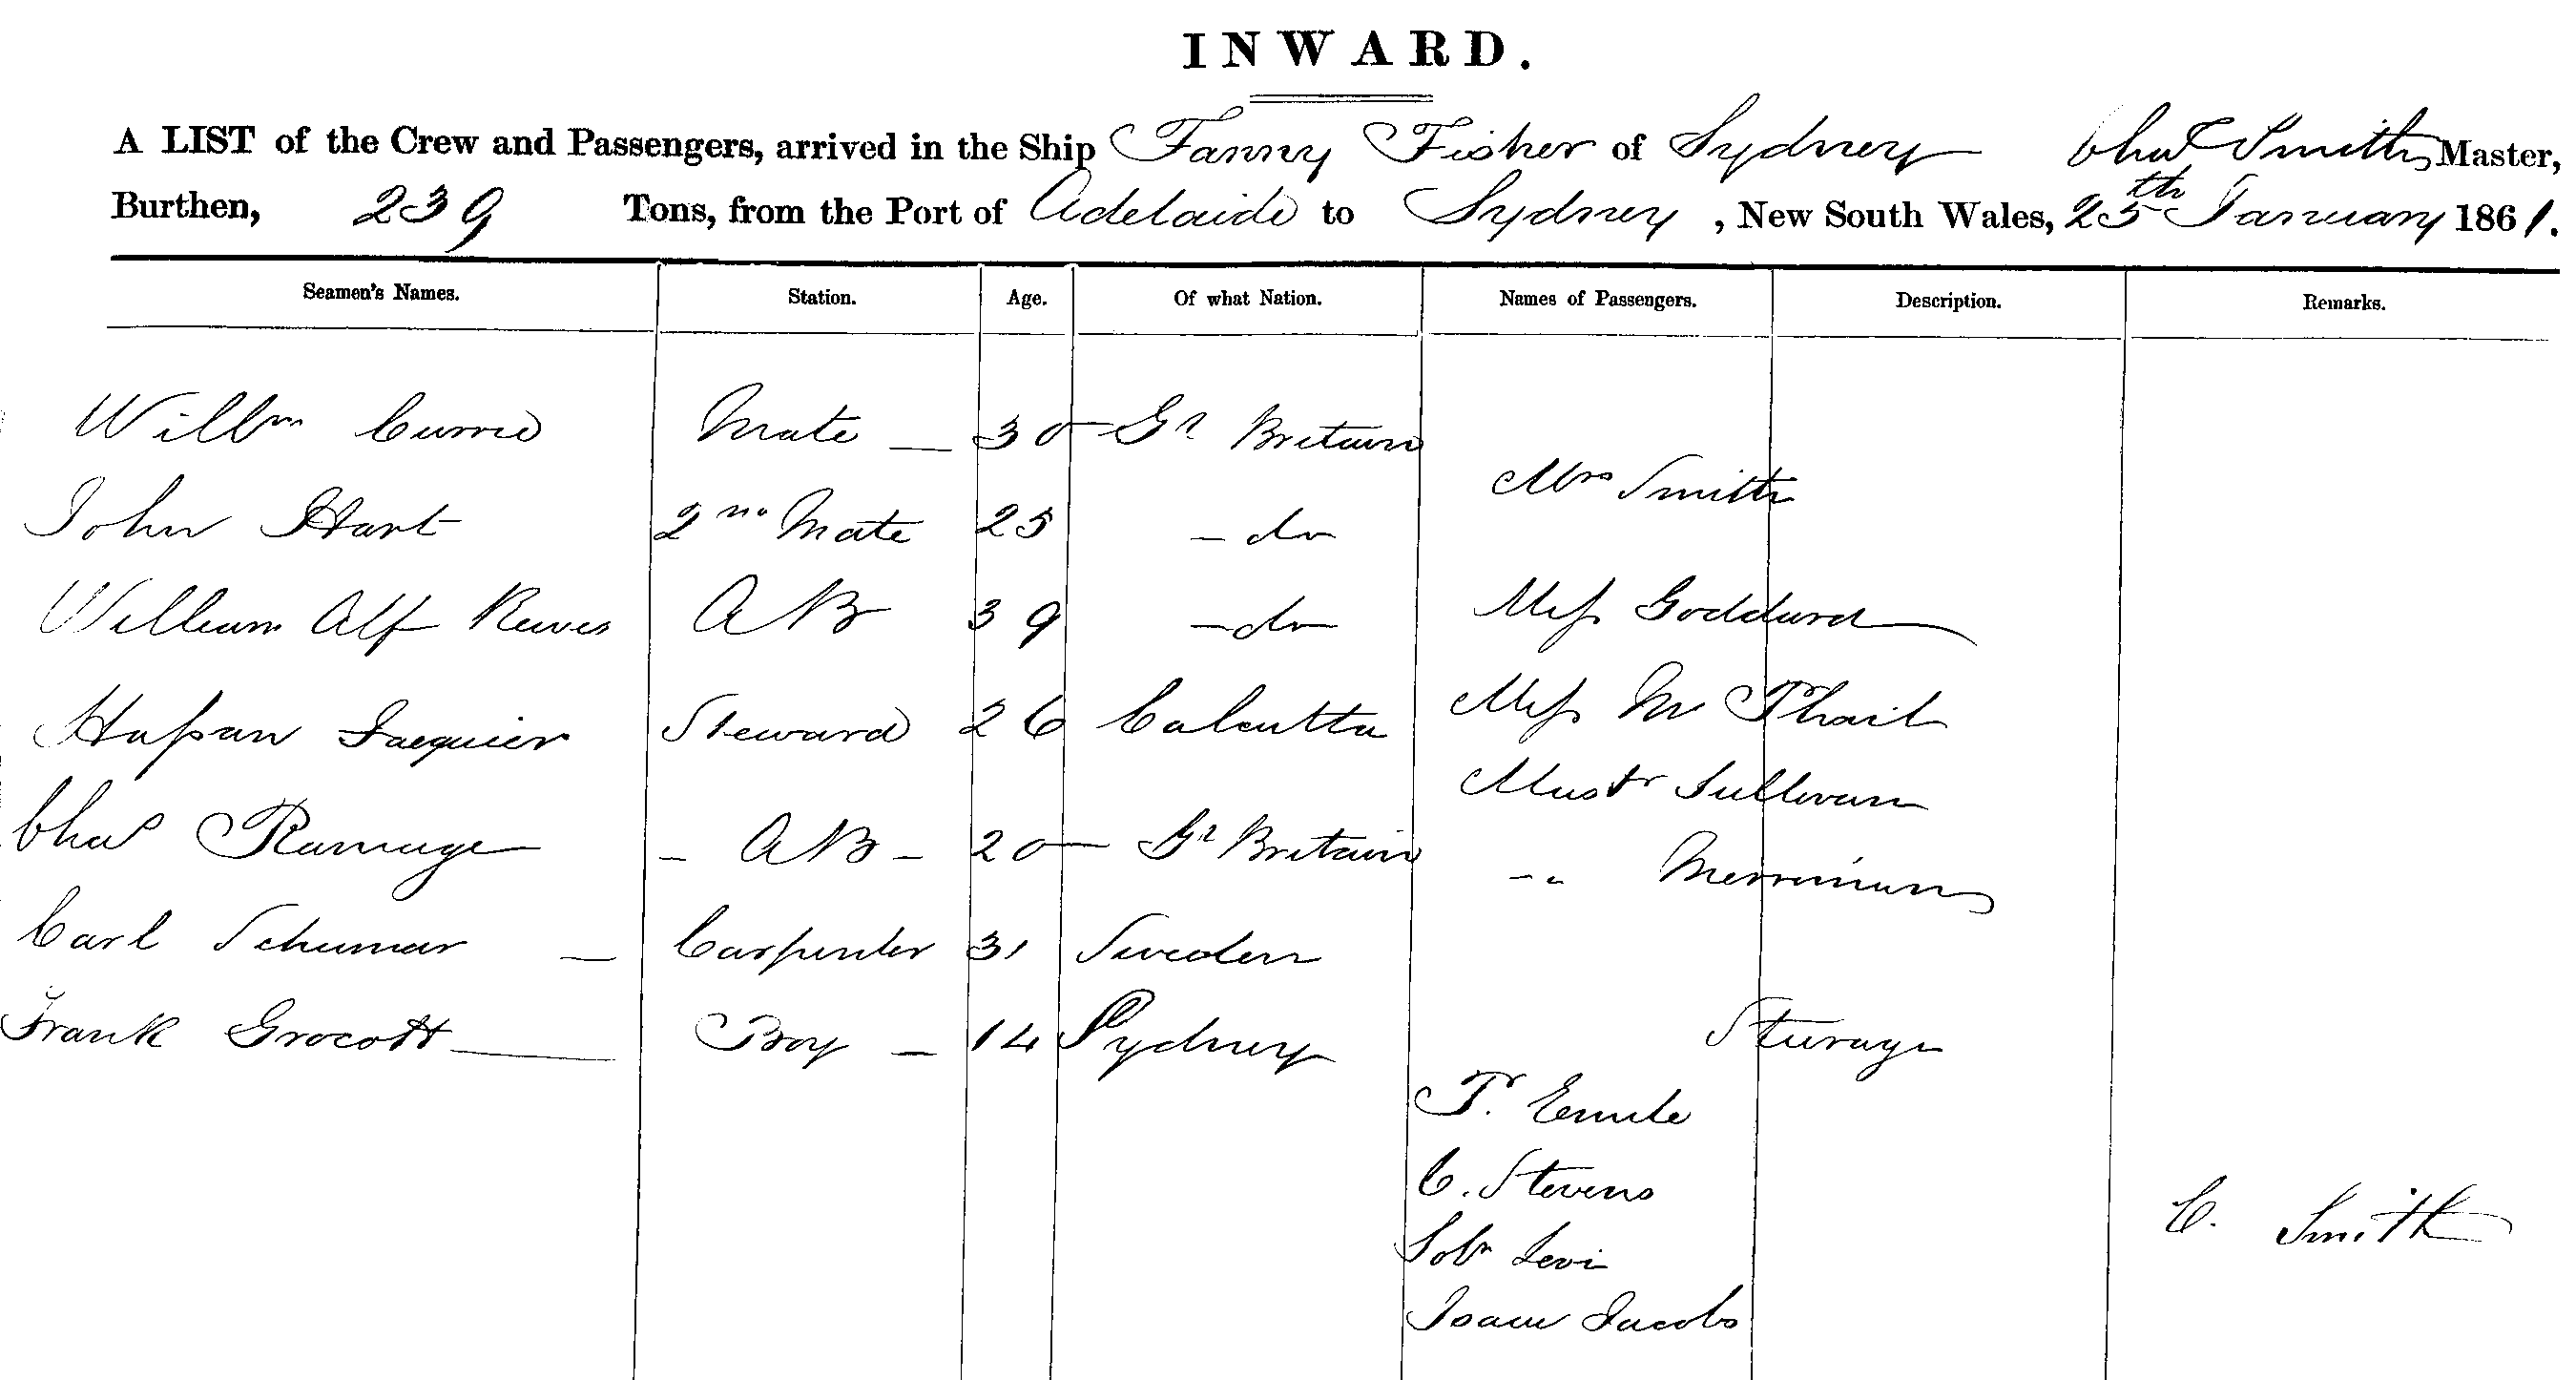 INWARD.
A LIST of the Crew and Passengers, arrived in the Ship Fanny Fisher of Sydney Chas Smith Master,
Burthen, 239 Tons, from the Port of Adelaide to Sydney, New South Wales, 25th January 1861.
Seamen's Names. Station. Age. Of what Nation. Names of Passengers. Description. Remarks.
Willm Currie Mate — 30 — Gt Britain
Mrs Smith
John Hart 2nd Mate 25 — do
William Alf Reeves AB 39 — do — Miss Goddard
Hassan Steward 26 Calcutta Miss McPhail
Mastr Sullivan
Chas Ramage — AB — 20 — Gt Britain
-" Merriman
Carl Schumar — Carpenter 31 Sweden
Frank Grocott — Boy — 14 Sydney Sturage
F. Emile
C. Stevens
C. Smith
Soln Levi
Isaac Jacobs